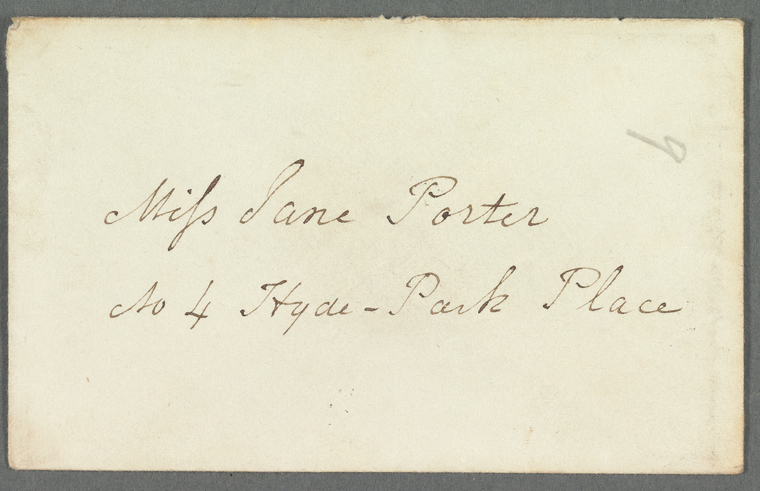 Miſs Jane Porter
No 4 Hyde-Park Place
9